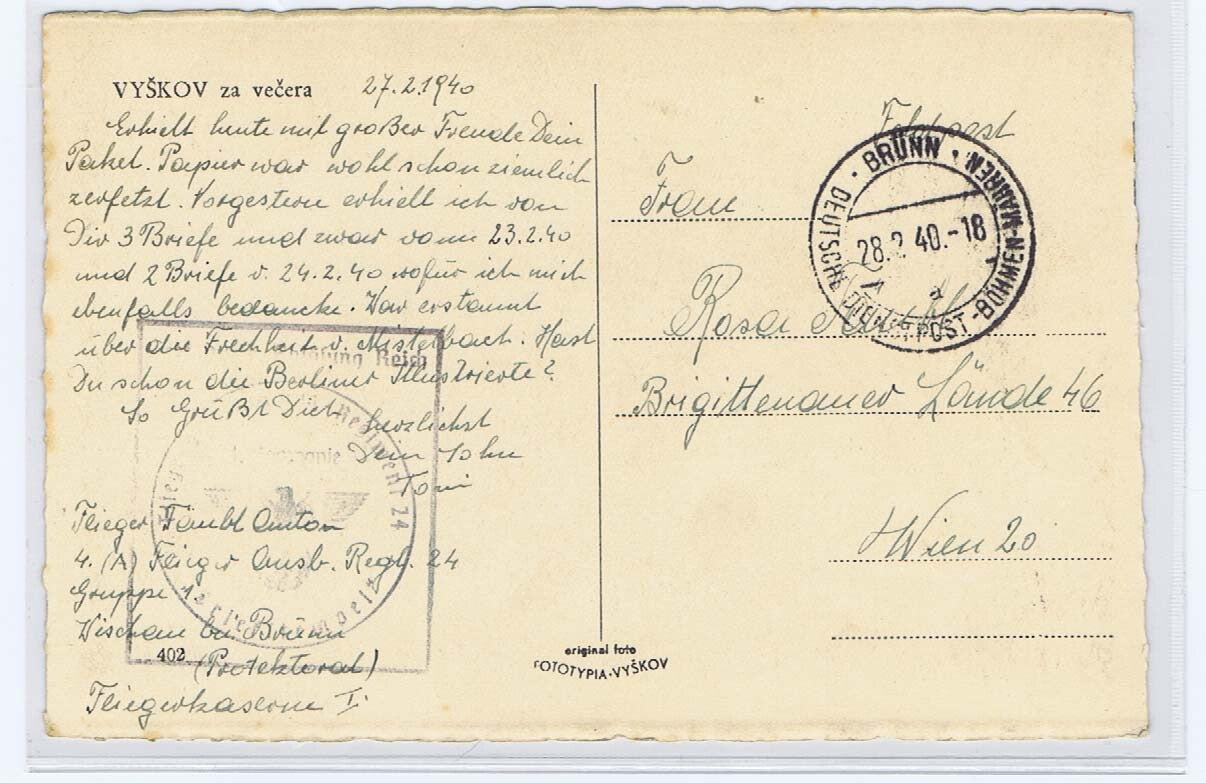 VYŠKOV za večera 27.2.1940
Erhielt heute mit großer Freude Dein
Paket. Papier war wohl schon ziemlich
zerfetzt. Vorgestern erhielt ich von
Dir 3 Briefe und zwar vom 23.2.40
und 2 Briefe v. 24.2.40 wofür ich mich
ebenfalls bedancke. War erstaunt
über die Frechheit v. Mistelbach. Hast
Du schon die Berliner Illustrierte?
So Grüßt Dich herzlichst
Dein Sohn
Toni
Flieger Taubl Anton
4. (A) Flieger Ausb. Regt. 24
Gruppe 1.
Wischau bei Brünn
402 (Protektorat)
Fliegerkaserne I.
Reich
Regiment 24
original foto
FOTOTYPIA-VYŠKOV
Feldpost
BRÜNN
DEUTSCHE DIENSTPOST-BÖHMEN-MÄHREN
28.2.40.-18
a
Frau
Rosa
Brigittenauer Lände 46
Wien 20